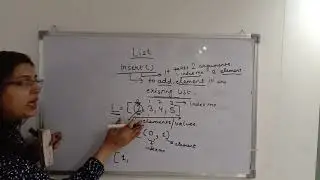 List
insert() it takes 2 arguments
index no & element
↳ to add element in an
existing list.
0 1 2 3 → index no
L = [2, 3, 4, 5]
elements/values
(0, 1)
index element
[1,